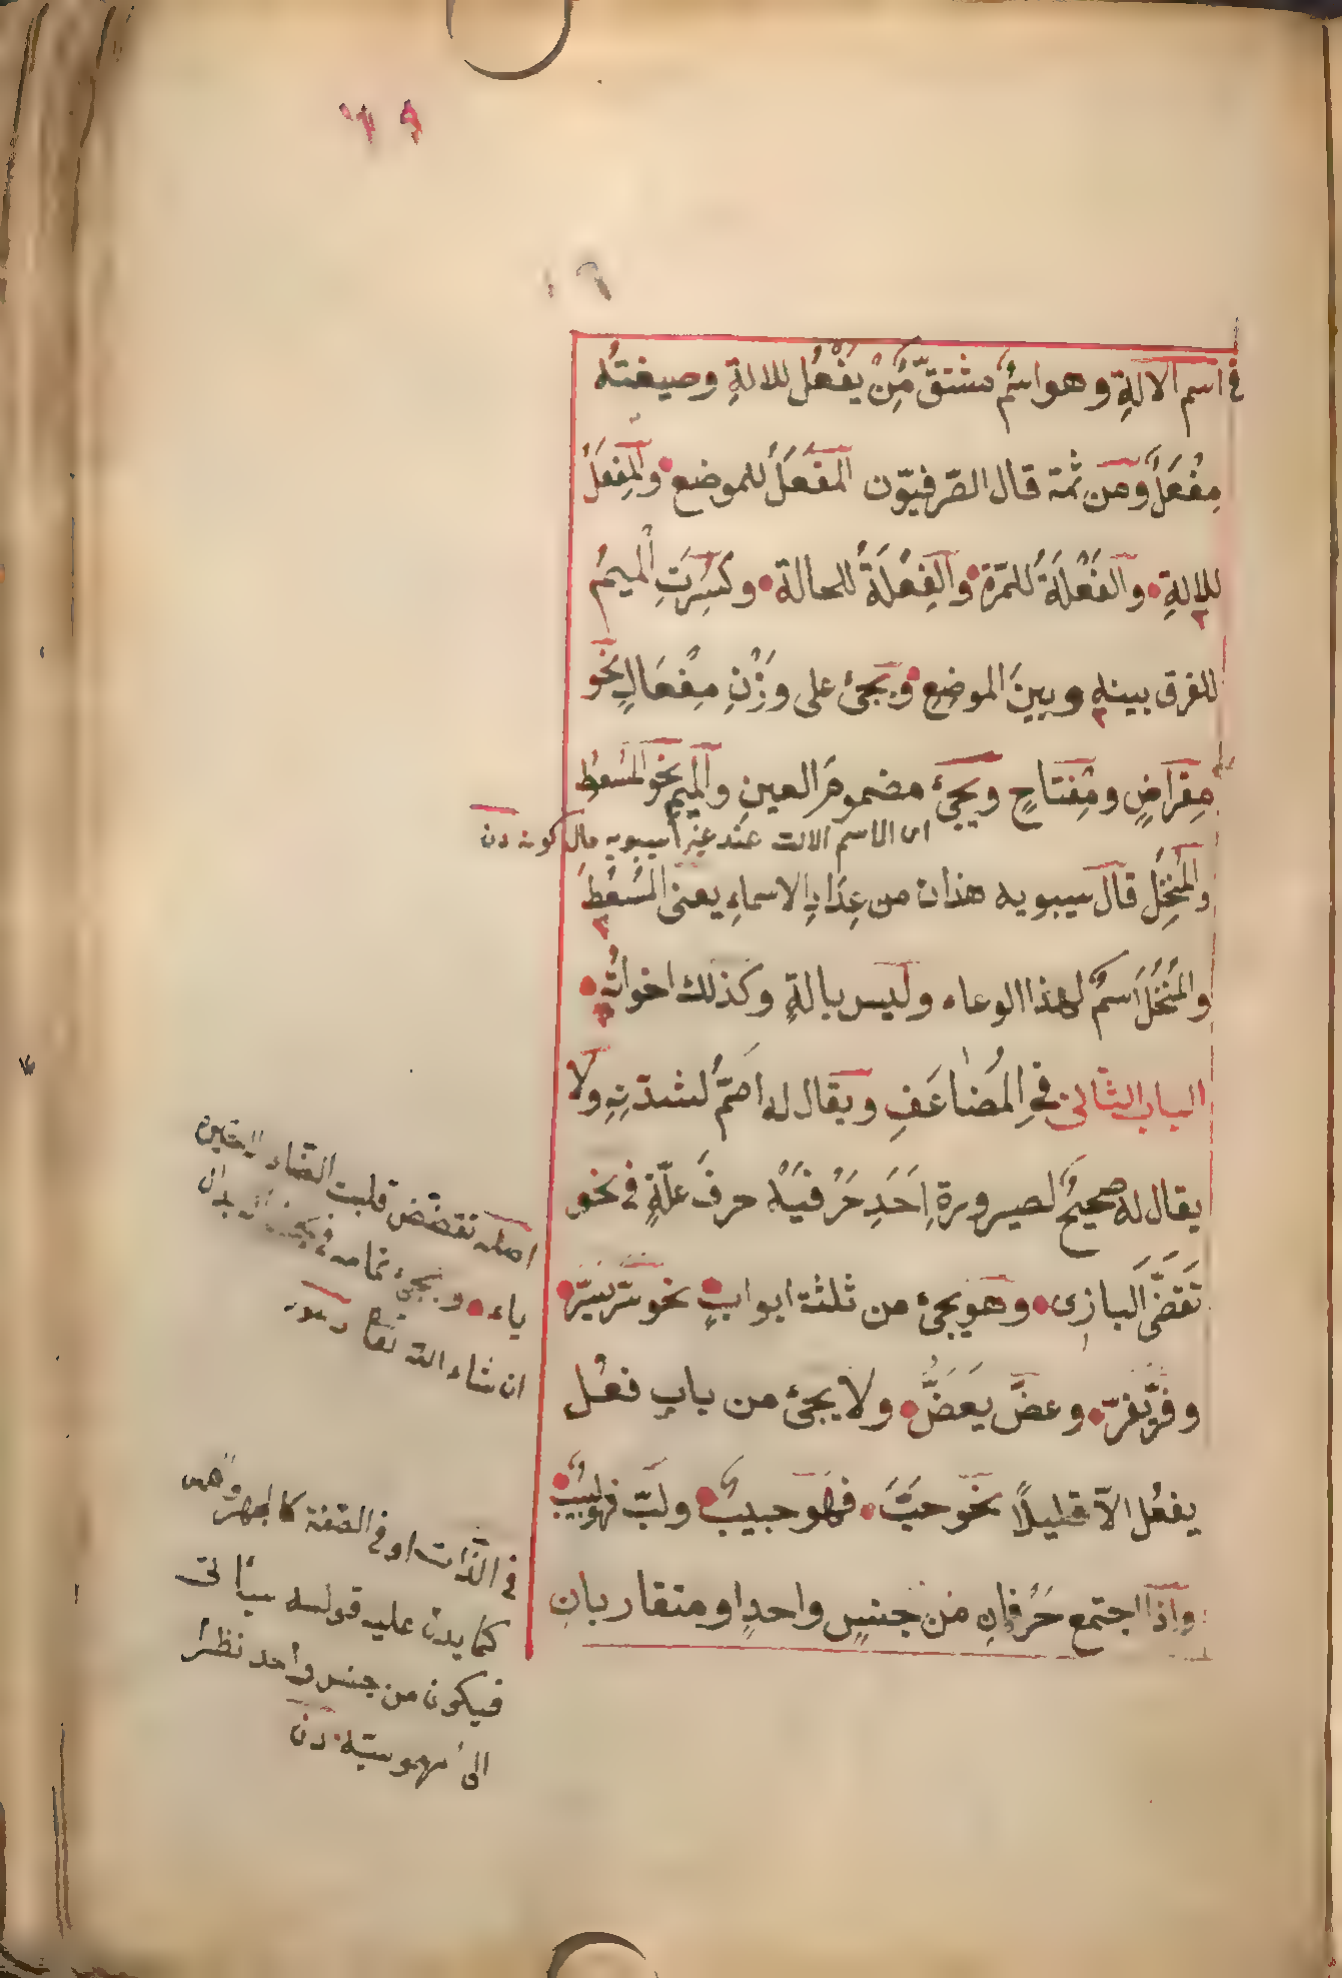 في اسم الالةِ وهو اسمٌ مشتقٌّ مِنْ يَفْعُل للالةِ وصيغتُه
مِفْعَلٌ ومن ثمة قال الصّرفيّون المَفعَلُ للموضع والمِفعَلُ
للالةِ والفَعْلَةُ للمَرّة والفِعْلَةُ للحالة وكُسِرَتِ الميمُ
للفرق بينه وبينَ الموضِعِ ويجئ على وَزْنِ مِفْعَالٍ نحو
مِقراضٍ ومِفتاحٍ ويجئ مضمومَ العينِ والميم نحو المُسْعُط
اى الاسم الالت عند غير سيبويه حال كونه دن
والمُنْخُل قال سيبويه هذان من عِدَادِ الاسماءِ يعنى المُسْعُط
والمُنْخُل اسمٌ لهذا الوعاء وليس بالةٍ وكذلك اخواتُه
الباب الثانى فى المُضَاعَفِ ويقال له اصَمُّ لشدّتِهِ ولا
يقال له صحيحٌ لصيرورة اَحَدِ حَرْفَيْه حرفَ علّةٍ فى نحو
تَقَضَّى البازى وهو يجئ من ثلثة ابوابٍ نحو سَرّ يَسُرّ
وفَرّ يَفِرّ وعضَّ يَعَضُّ ولا يجئ من بابِ فعُل
يفعُل الاّ قليلًا نحو حبَّ فهُوَ حبيبٌ ولبّ فهو لبيبٌ
واذا اجتمع حَرْفانِ من جنسٍ واحدٍ او متقاربانِ
اصله تقضّض قلبت الضاد الاخيرة
ياء ويجئ تمامه فى
ان شاء الله تعا
فى الذّات او فى الصّفة كالجهر وهمس
كما يدل عليه قوله سيأتى
فيكون من جنس واحد نظرا
الى مهموسيّة دن